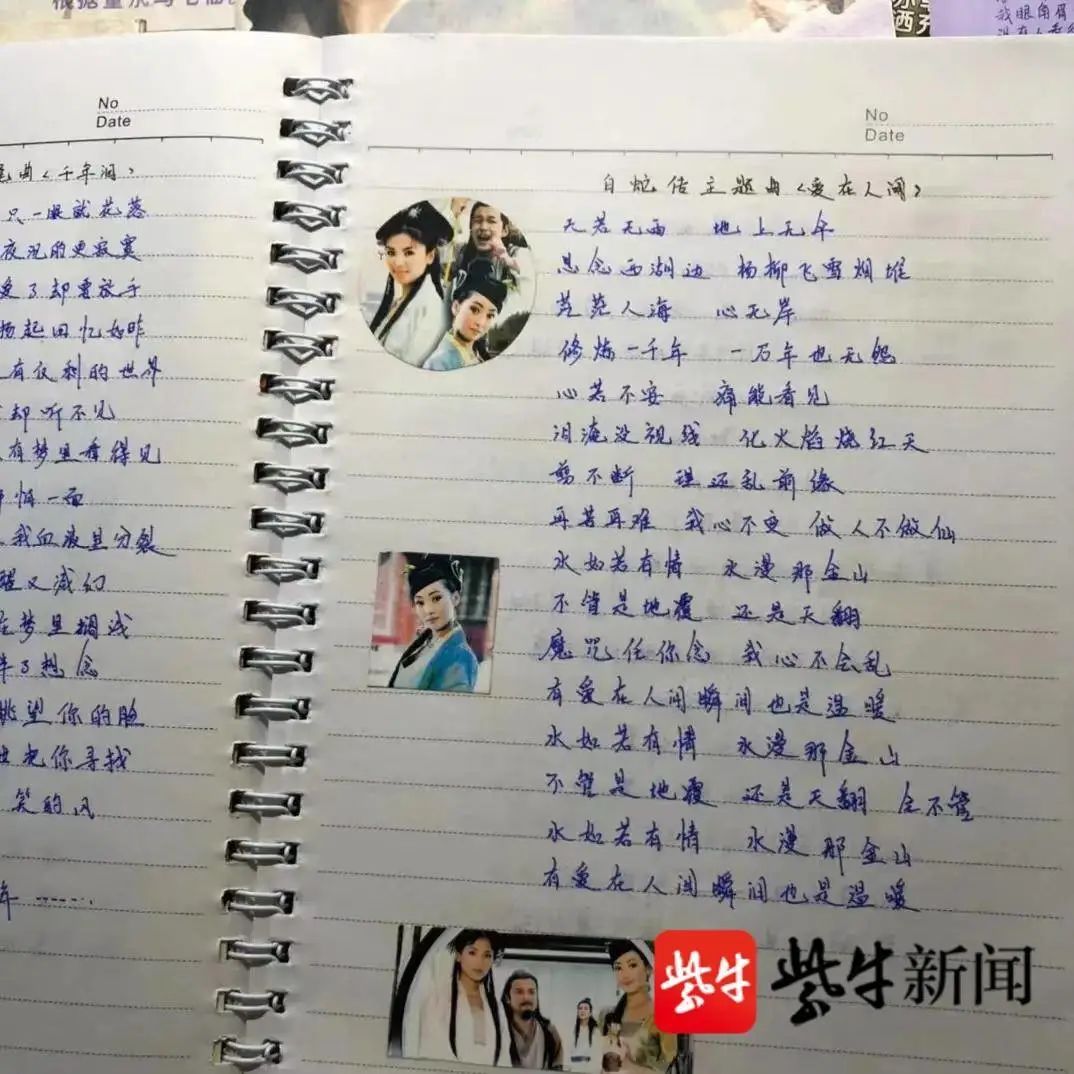 No
Date
曲《千年泪》
只一眼就花落
夜沉的更寂寞
爱了却要放手
扬起回忆如昨
有仅剩的世界
却听不见
有梦里看得见
情一面
我血液里分裂
醒又减幻
在梦里搁浅
了想念
眺望你的脸
把你寻找
笑的风
年 ......
No
Date
白蛇传主题曲《爱在人间》
天若无雨 地上无伞
思念西湖边 杨柳飞雪烟堆
茫茫人海 心无岸
修炼一千年 一万年也无怨
心若不安 痛能看见
泪淹没视线 化火焰烧红天
剪不断 理还乱前缘
再苦再难 我心不变 做人不做仙
水如若有情 水漫那金山
不管是地覆 还是天翻
魔咒任你念 我心不会乱
有爱在人间瞬间也是温暖
水如若有情 水漫那金山
不管是地覆 还是天翻 全不管
水如若有情 水漫那金山
有爱在人间瞬间也是温暖
紫牛 紫牛新闻